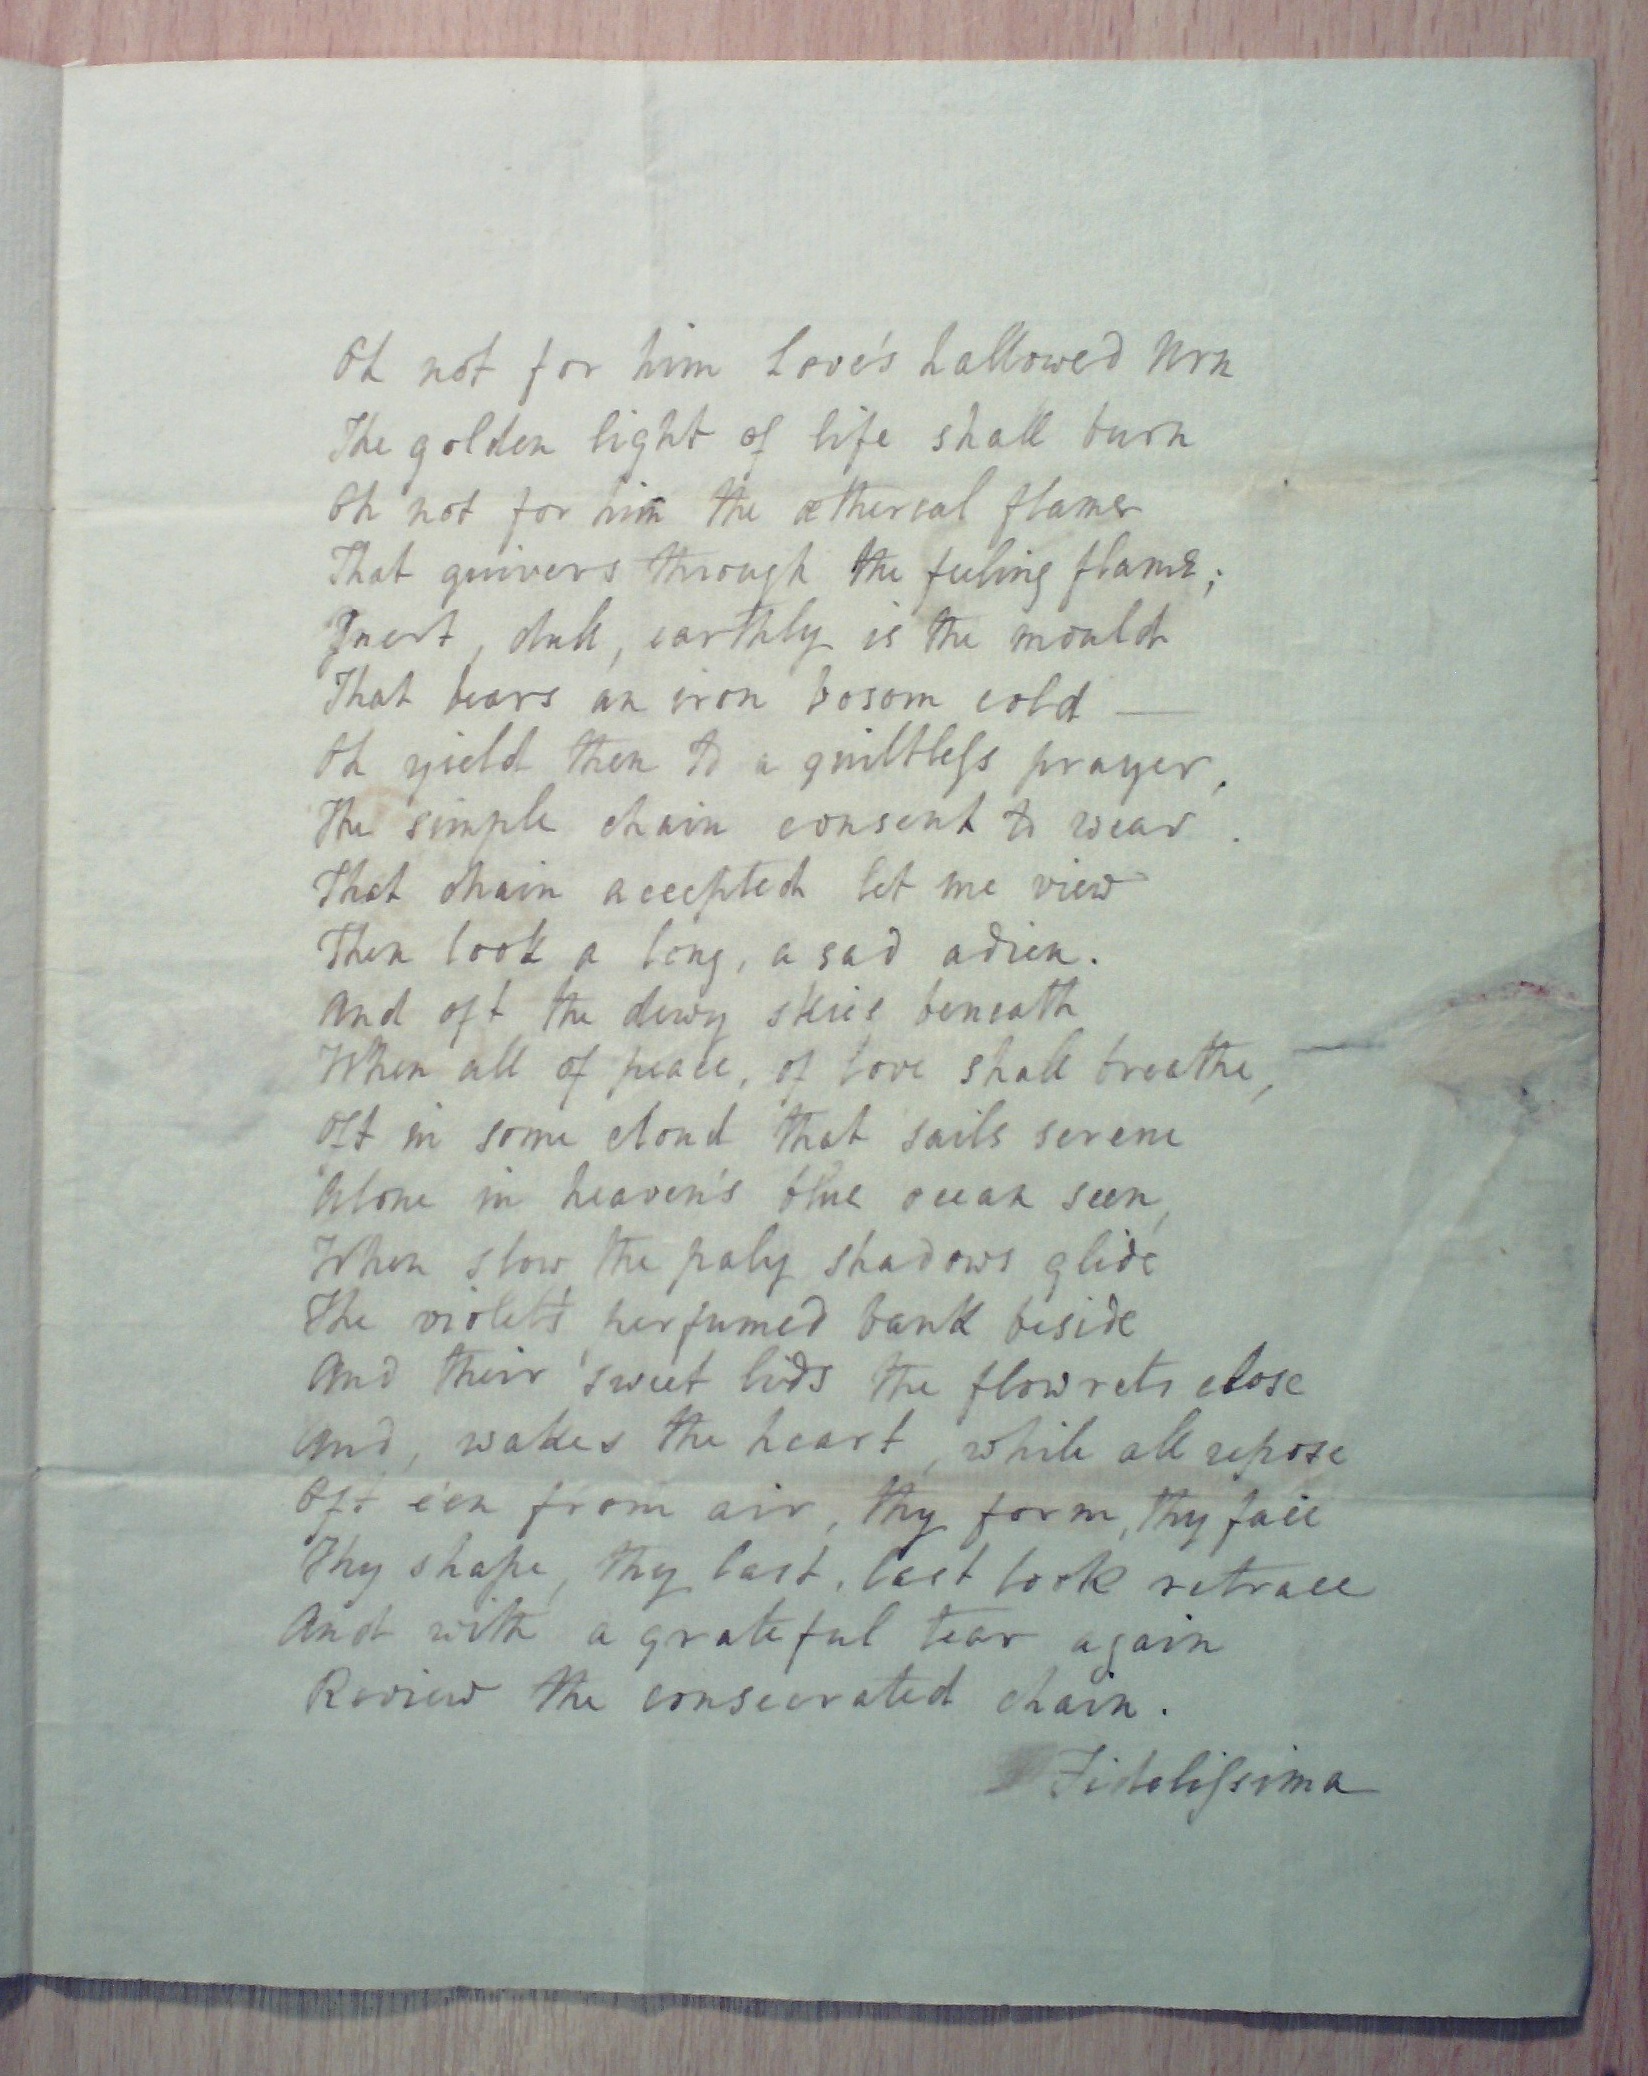 Oh not for him Love's hallowed Urn
The golden light of life shall burn
Oh not for him the æthereal flames
That quivers through the feeling flame;
Inert, dull, earthly is the mould
That bears an iron bosom cold —
Oh yield then to a guiltleſs prayer,
The simple chain consent to wear.
That chain accepted let me view
Then look a long, a sad adieu.
And oft the dewy skies beneath
When all of peace, of love shall breathe,
Oft in some cloud that sails serene
Alone in heaven's blue ocean seen,
When slow the paly shadows glide
The violets perfumed bank beside
And their sweet lids the flowrets close
And, wakes the heart, while all repose
Oft e'en from air, thy form, thy face
Thy shape, thy last, last look retrace
And with a grateful tear again
Review the consecrated chain.
Fideliſsima